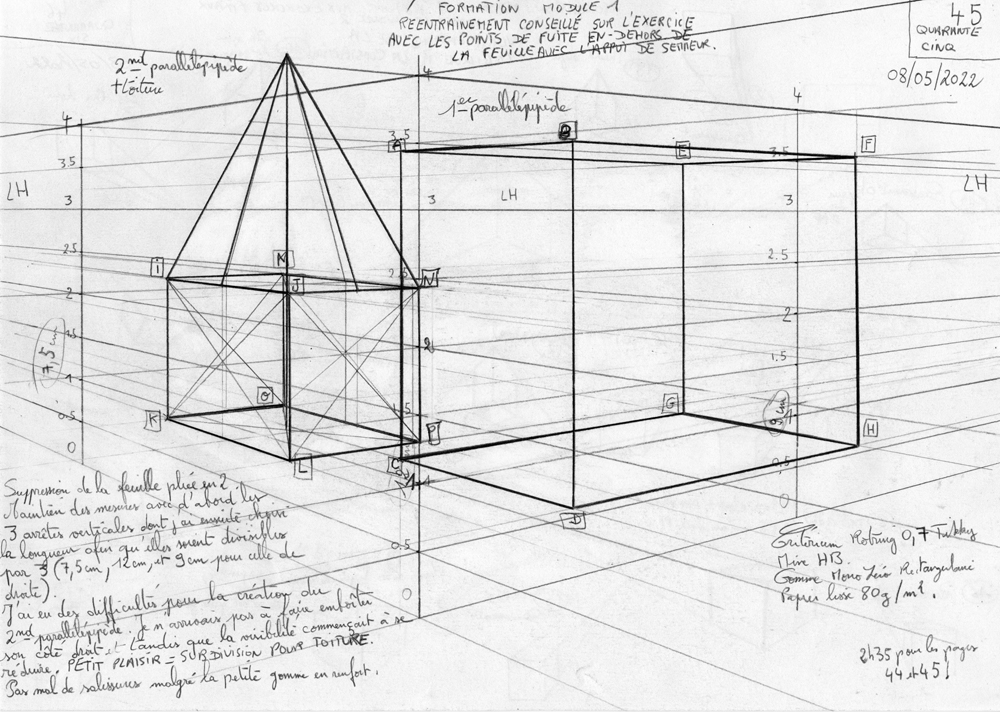 FORMATION MODULE 1
REENTRAINEMENT CONSEILLÉ SUR L'EXERCICE
AVEC LES POINTS DE FUITE EN-DEHORS DE
LA FEUILLE AVEC L'APPUI DE SEMEUR.
45
QUARANTE
CINQ
08/05/2022
2nd parallélépipède
+ toiture
1er parallélépipède
4
4
4
3.5
3.5
3.5
A
B
E
F
LH
LH
LH
3
3
3
2.5
2.5
2.5
I
M
J
N
2
2
2
1.5
1.5
1.5
7,5 cm
9 cm
1
1
1
0.5
0.5
0.5
0
0
0
K
O
L
P
C
D
G
H
Suppression de la feuille pliée en 2.
Maintien des mesures avec d'abord les
3 arêtes verticales dont j'ai ensuite choisi
la longueur afin qu'elles soient divisibles
par 3 (7,5cm, 12cm, et 9cm pour celle de
droite).
J'ai eu des difficultés pour la création du
2nd parallélépipède. Je n'arrivais pas à faire
son côté droit et tandis que la visibilité commençait à se
réduire. PETIT PLAISIR = SUBDIVISION POUR TOITURE.
Pas mal de salissures malgré la petite gomme en renfort.
Critérium Rotring 0,7
Mine HB.
Gomme Mono Zéro Rectangulaire
Papier lisse 80g/m².
2h35 pour les pages
44 et 45!